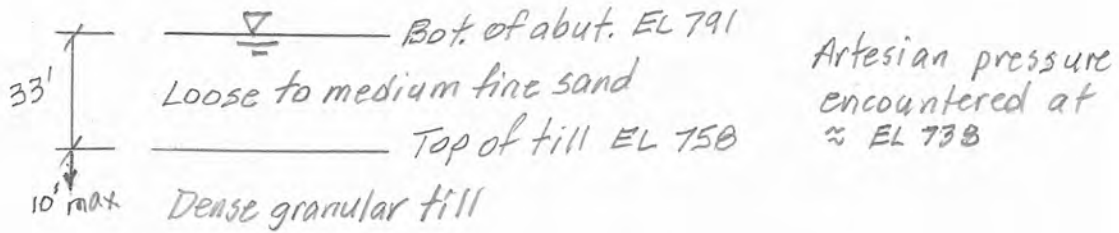 Bot. of abut. EL 791
33'
Loose to medium fine sand
Top of till EL 758
10' max
Dense granular till
Artesian pressure
encountered at
≈ EL 738